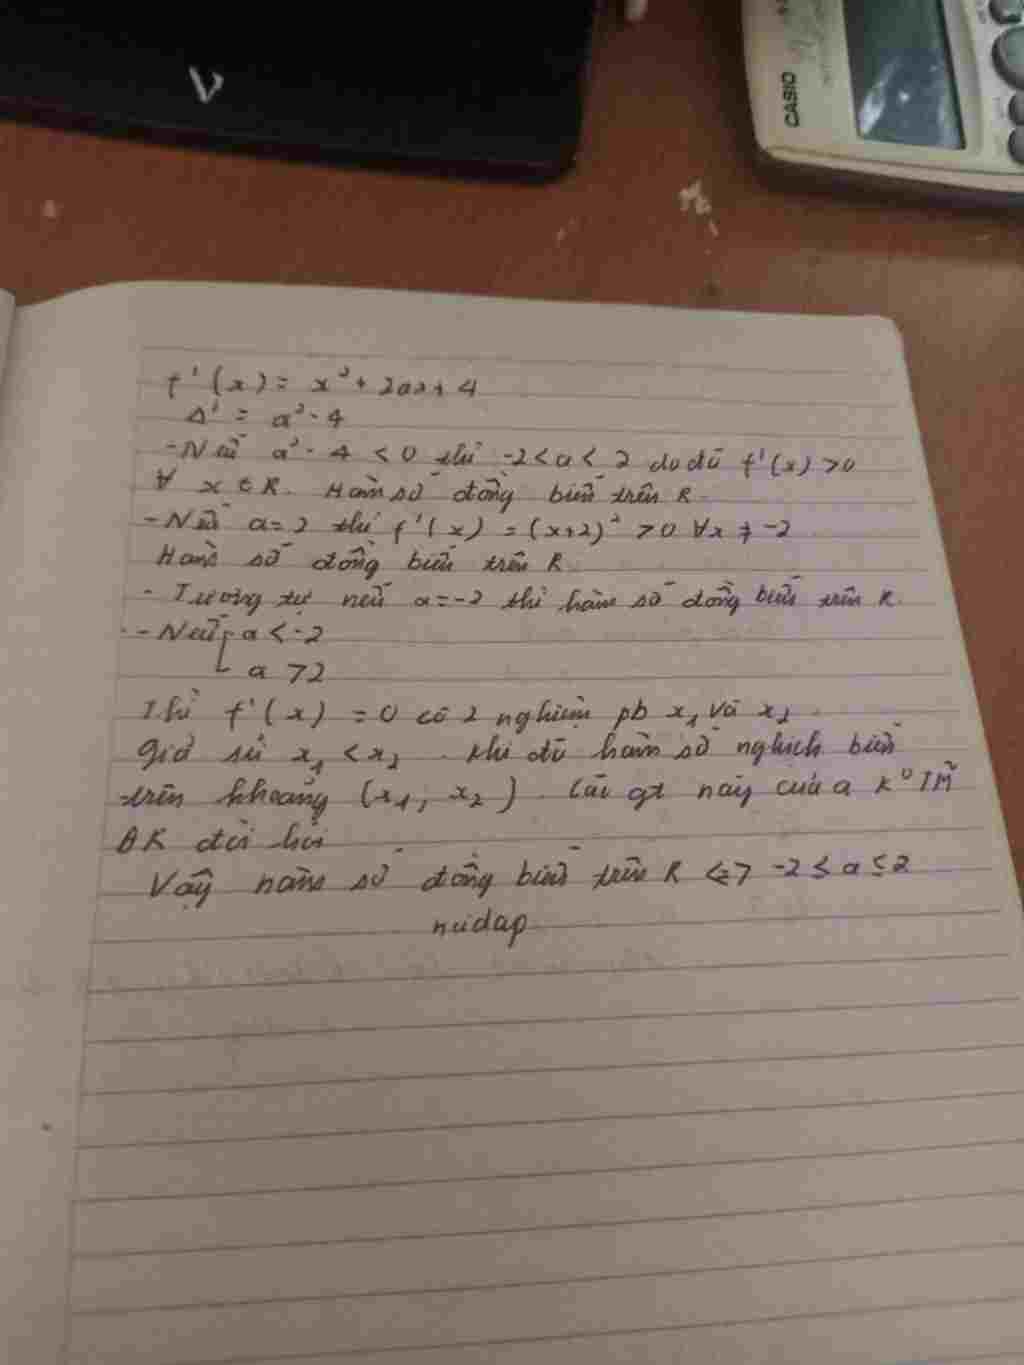 CASIO
f'(x) = x² + 2ax + 4
Δ' = a² - 4
- Nếu a² - 4 < 0 thì -2 < a < 2 do đó f'(x) > 0
∀ x ∈ R. Hàm số đồng biến trên R.
- Nếu a = 2 thì f'(x) = (x+2)² > 0 ∀x ≠ -2
Hàm số đồng biến trên R
- Tương tự nếu a = -2 thì hàm số đồng biến trên R.
- Nếu [ a < -2
a > 2
Thì f'(x) = 0 có 2 nghiệm pb x₁ và x₂.
Giả sử x₁ < x₂. Khi đó hàm số nghịch biến
trên khoảng (x₁, x₂). Các gt này của a K⁰ TM
ĐK đòi hỏi
Vậy hàm số đồng biến trên R <=> -2 ≤ a ≤ 2